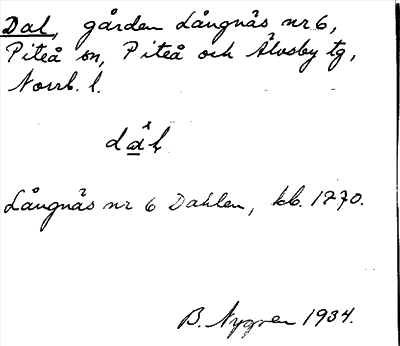 Dal, gården Långnäs nr 6,
Piteå sn, Piteå och Älvsby tg,
Norrb. l.
Långnäs nr 6 Dahlen, kb. 1770.
B. Nygren 1934.